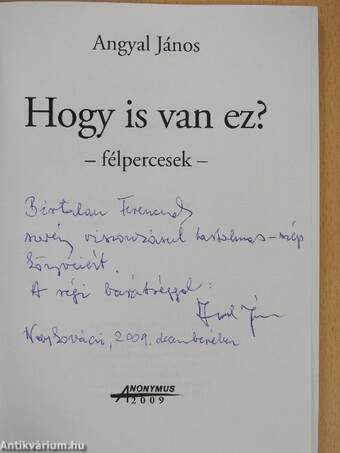 Angyal János
Hogy is van ez?
– félpercesek –
Birtalan Ferencnek
szerény viszonzásul tartalmas-szép
könyveiért.
A régi barátsággal:
Nagykovácsi, 2009. decemberében
ANONYMUS
2009
Antikvárium.hu